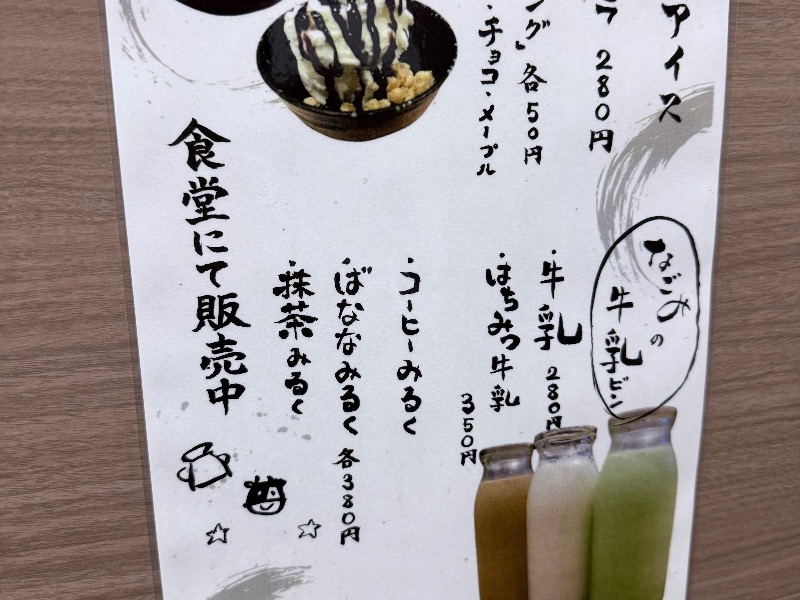 アイス
280円
ング」各50円
・チョコ・メープル
なごみの
牛乳ビン
・牛乳 280円
・はちみつ牛乳
350円
・コーヒーみるく
・ばななみるく 各380円
・抹茶みるく
食堂にて販売中